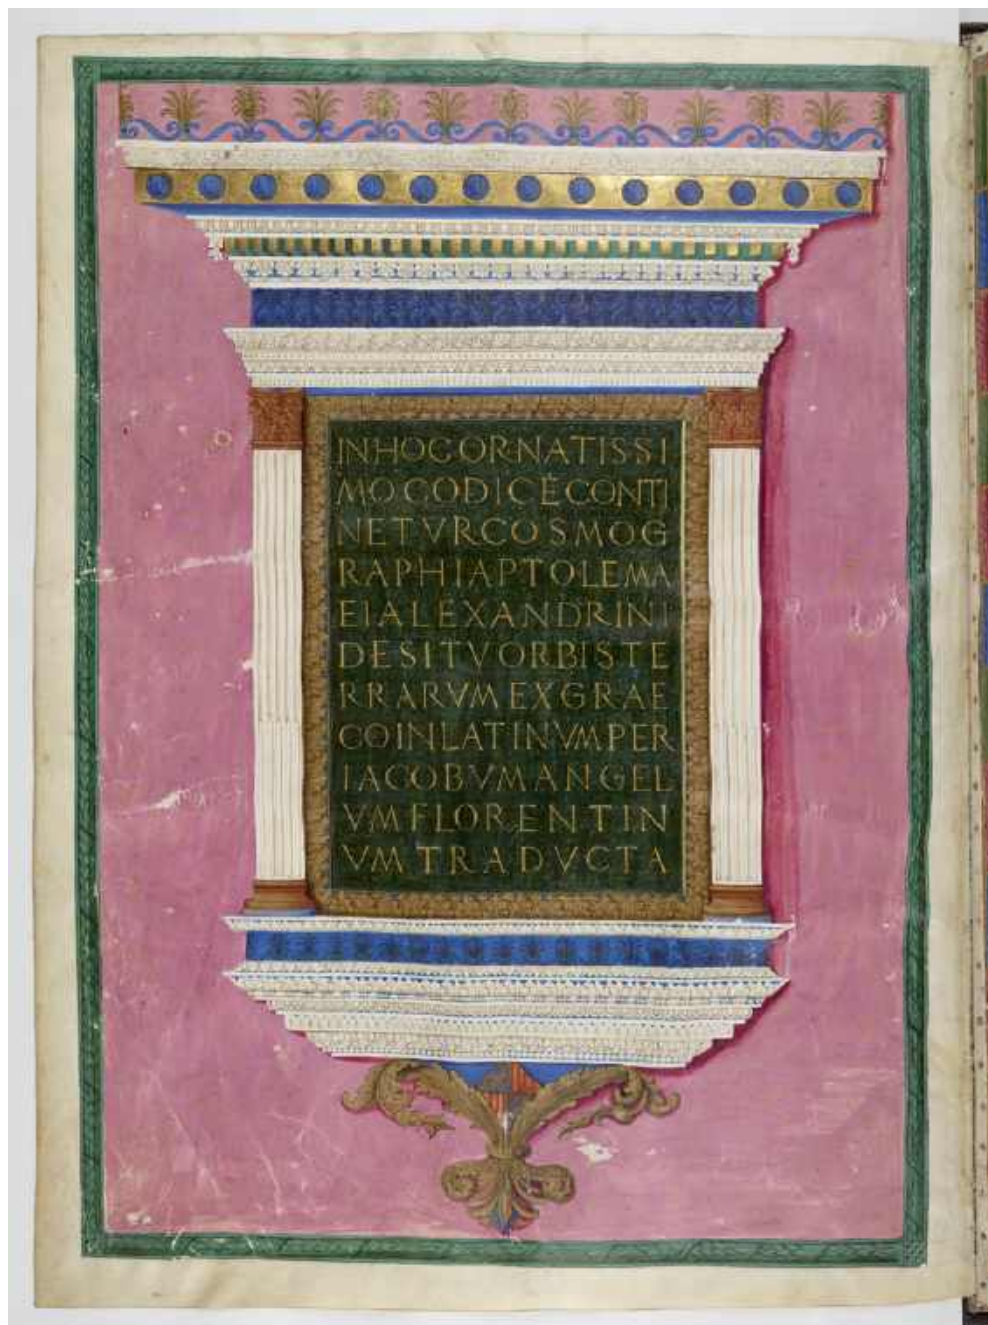 INHOCORNATISSI
MOCODICĒCONTI
NETVRCOSMOG
RAPHIAPTOLEMA
EIALEXANDRINI
DESITVORBISTE
RRARVMEXGRAE
COINLATINVMPER
IACOBVMANGEL
VMFLORENTIN
VMTRADVCTA